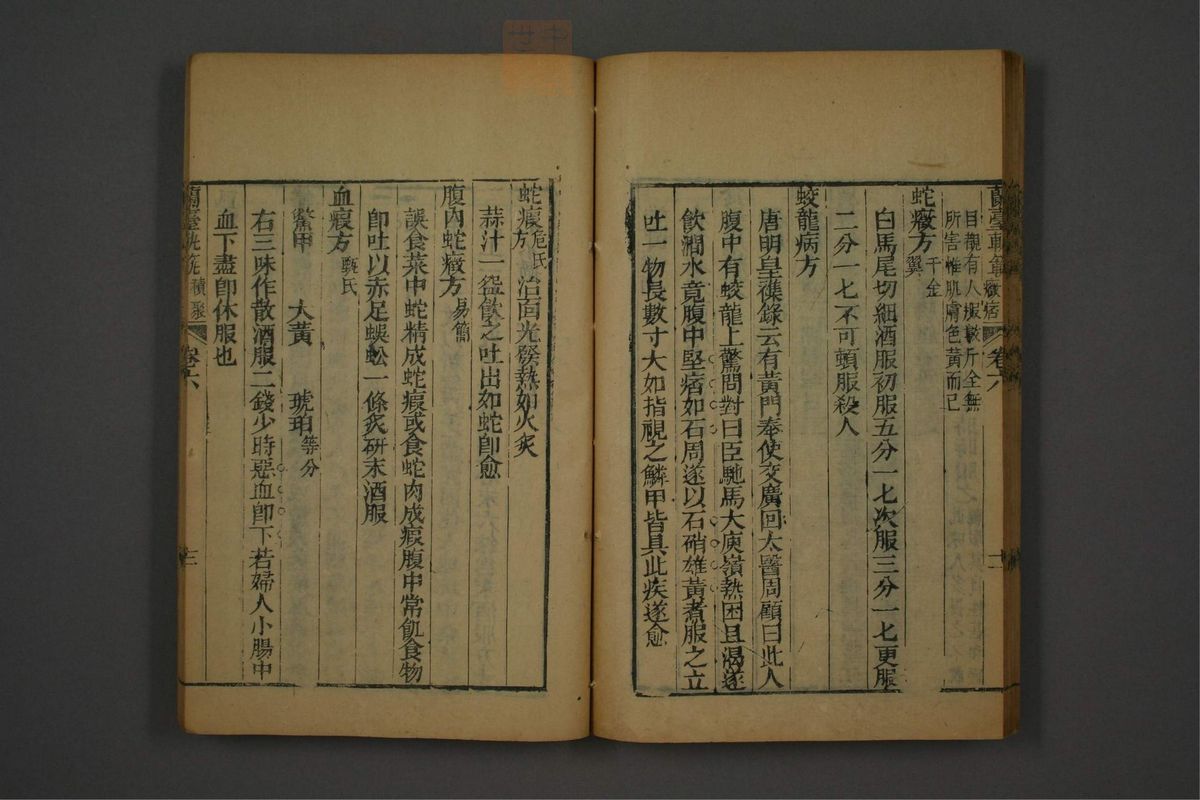 蘭臺軌範 癥痞 卷六
目覩有人服數斤全無
所害惟肌膚色黃而已
蛇癥方 千金翼
白馬尾切細酒服初服五分一七次服三分一七更服
二分一七不可頓服殺人
蛟龍病方
唐明皇雜錄云有黃門奉使交廣回太醫周顧曰此人
腹中有蛟龍上驚問對曰臣馳馬大庾嶺熱困且渴遂
飲澗水竟腹中堅痞如石周遂以石硝雄黃煮服之立
吐一物長數寸大如指視之鱗甲皆具此疾遂愈
蛇瘕方 危氏 治面光發熱如火炙
蒜汁一盌飲之吐出如蛇即愈
腹內蛇癥方 易簡
誤食菜中蛇精成蛇瘕或食蛇肉成瘕腹中常飢食物
即吐以赤足蜈蚣一條炙研末酒服
血瘕方 甄氏
鱉甲 大黃 琥珀 等分
右三味作散酒服二錢少時惡血即下若婦人小腸中
血下盡即休服也
蘭臺軌範 積聚 卷六